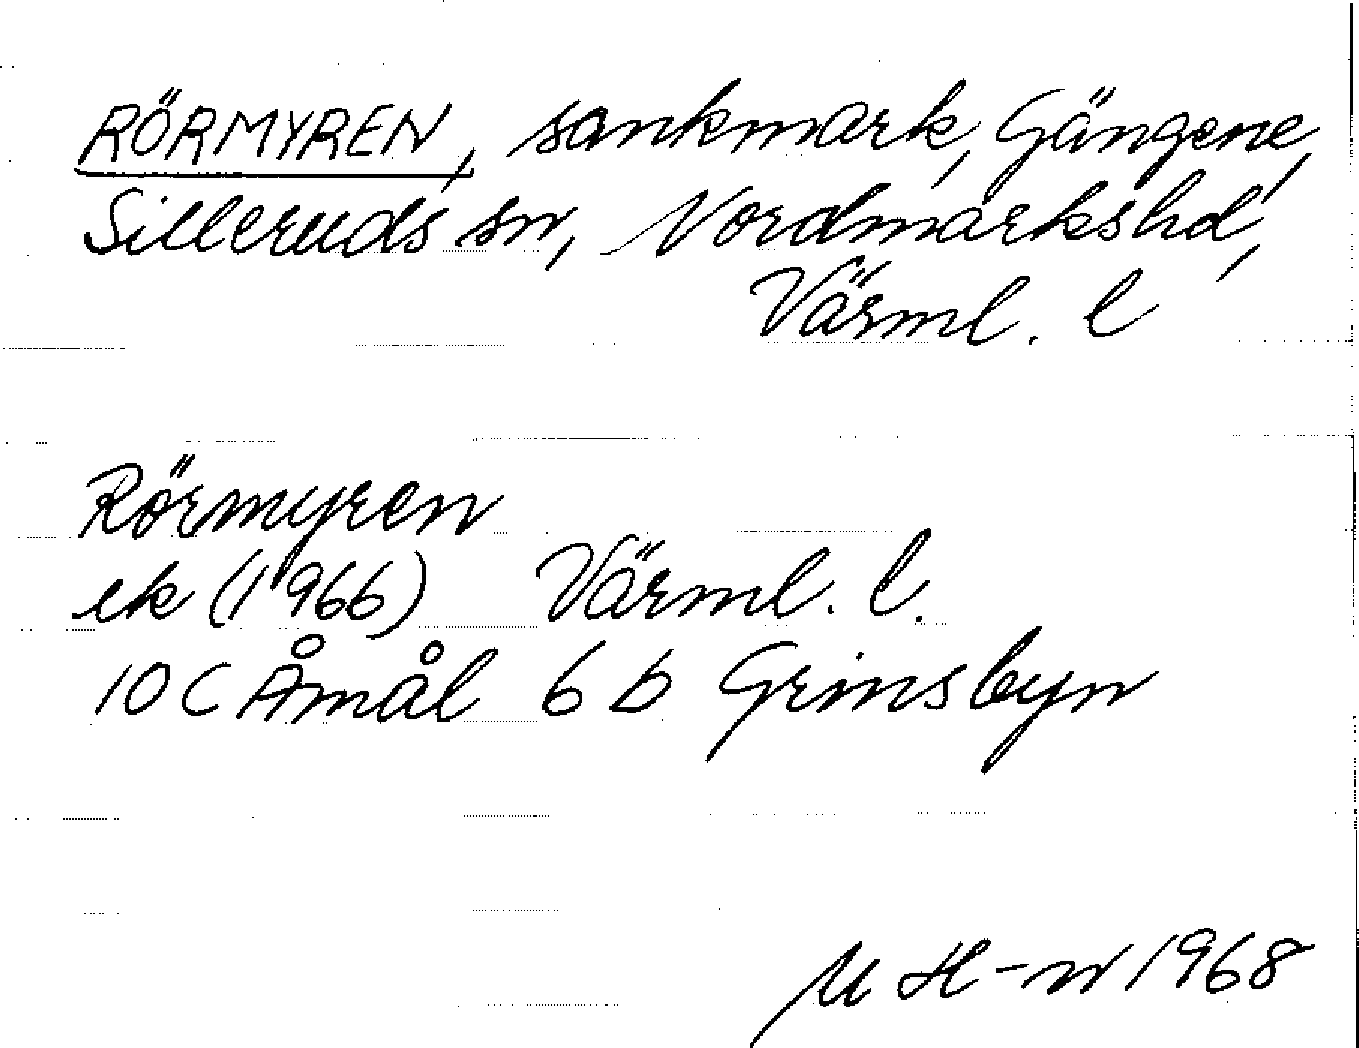 RÖRMYREN, sankmark, Gängene,
Silleruds sn, Nordmarkshd,
Värml. l
Rörmyren
ek (1966) Värml. l.
10 C Åmål 6 b Grinsbyn
M H-n 1968